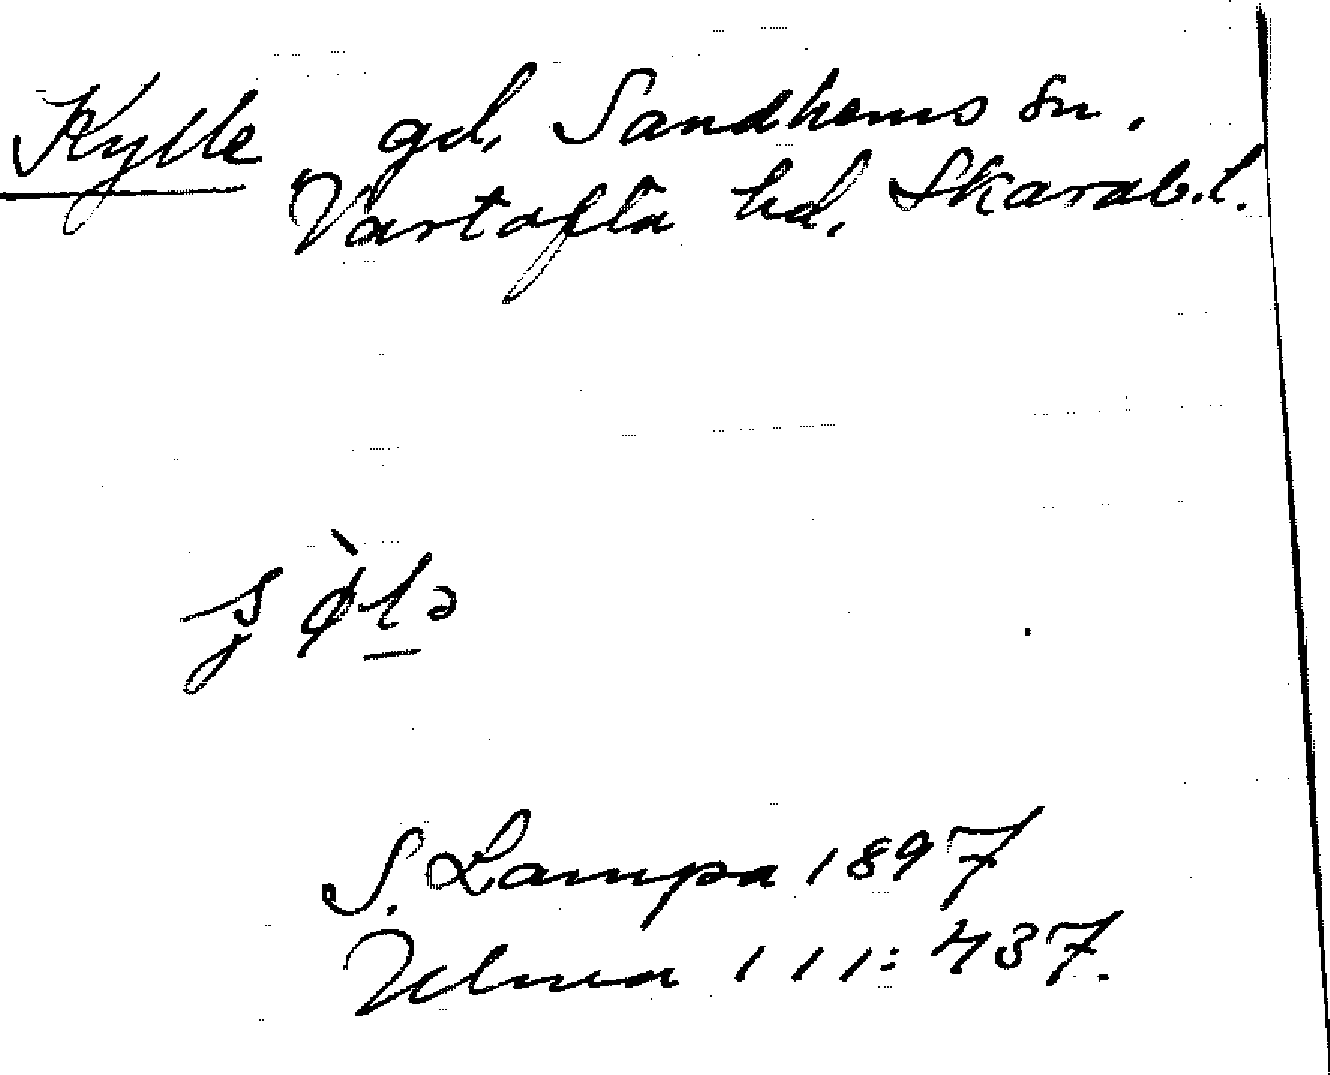 Kylle gd, Sandhems sn.
Vartofta hd, Skarab.l.
S. Lampa 1897
Ulma 111:437.